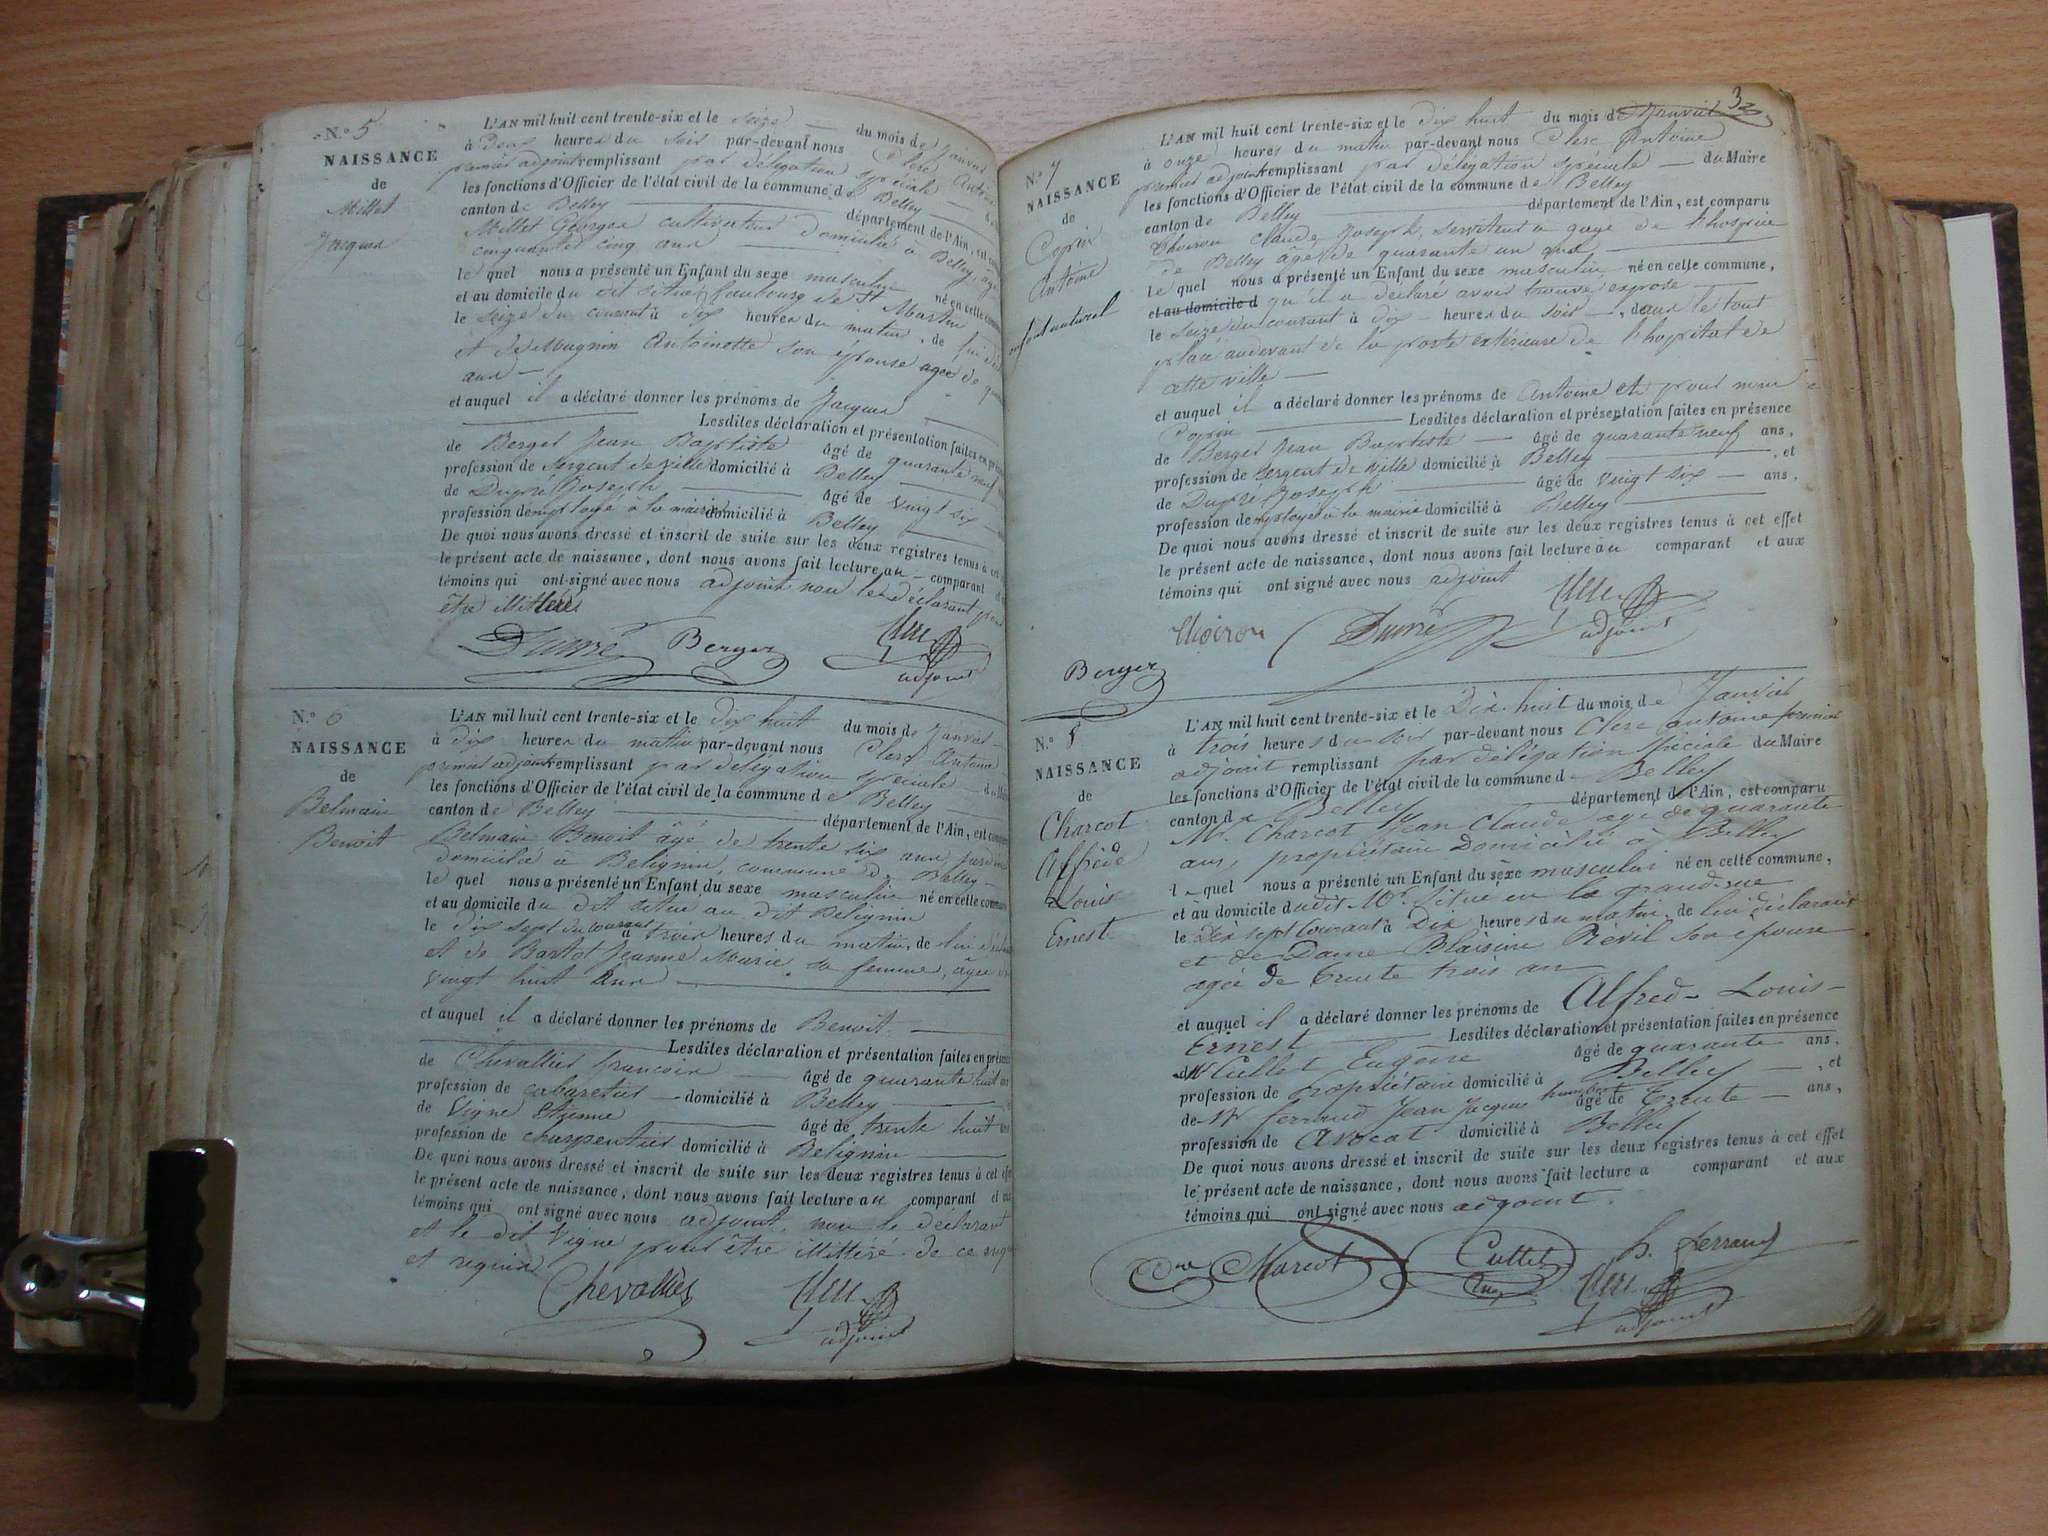 N.° 5
NAISSANCE
de
Millet
Jacques
L'AN mil huit cent trente-six et le seize du mois de Janvier
à Deux heures du soir par-devant nous Clerc Antoine
premier adjoint remplissant par délégation spéciale
les fonctions d'Officier de l'état civil de la commune de Belley
canton de Belley département de l'Ain, est
Millet George cultivateur domicilié à Belley, âgé
cinquante cinq ans
le quel nous a présenté un Enfant du sexe masculin né en cette commune
et au domicile du dit situé faubourg de St Martin
le seize du courant à dix heures du matin, de lui
et de Mugnin Antoinette son épouse agée de
ans
et auquel il a déclaré donner les prénoms de Jacques
Lesdites déclaration et présentation faites en
de Berger Jean Baptiste âgé de quarante neuf
profession de sergent de ville domicilié à Belley
de Dupré Joseph âgé de vingt six
profession d'employé à la mairie domicilié à Belley
De quoi nous avons dressé et inscrit de suite sur les deux registres tenus à cet
le présent acte de naissance, dont nous avons fait lecture au comparant
témoins qui ont signé avec nous adjoint non le déclarant pour
être illittéré
Dupré Berger Clerc
adjoint
N.° 6
NAISSANCE
de
Belmain
Benoit
L'AN mil huit cent trente-six et le dix huit du mois de Janvier
à dix heures du matin par-devant nous Clerc Antoine
premier adjoint remplissant par délégation spéciale du Maire
les fonctions d'Officier de l'état civil de la commune de Belley
canton de Belley département de l'Ain, est
Belmain Benoit âgé de trente six ans,
domicilié à Belignin, commune de Belley
le quel nous a présenté un Enfant du sexe masculin né en cette commune
et au domicile du dit situé au dit Belignin
le dix sept du courant à trois heures du matin, de lui
et de Bartot Jeanne Marie sa femme, âgée de
vingt huit ans
et auquel il a déclaré donner les prénoms de Benoit
Lesdites déclaration et présentation faites en
de Chevallier francois âgé de quarante huit ans
profession de cabaretier domicilié à Belley
de Vigne Etienne âgé de trente huit ans
profession de charpentier domicilié à Belignin
De quoi nous avons dressé et inscrit de suite sur les deux registres tenus à cet
le présent acte de naissance, dont nous avons fait lecture au comparant et
témoins qui ont signé avec nous adjoint, non le déclarant
et le dit Vigne pour être illittéré de ce
et requis
Chevallier Clerc
adjoint
3
N.° 7
NAISSANCE
de
Coprin
Antoine
enfant naturel
L'AN mil huit cent trente-six et le dix huit du mois de Janvier
à onze heures du matin par-devant nous Clerc Antoine
premier adjoint remplissant par délégation spéciale du Maire
les fonctions d'Officier de l'état civil de la commune de Belley
canton de Belley département de l'Ain, est comparu
Thoiron Claude Joseph, serviteur à gage de l'hospice
de Belley âgé de quarante un ans
le quel nous a présenté un Enfant du sexe masculin, né en cette commune,
et au domicile d qu'il a déclaré avoir trouvé exposé
le seize du courant à dix heures du soir, dans le tour
placé audevant de la porte extérieure de l'hopital de
cette ville
et auquel il a déclaré donner les prénoms de Antoine et pour nom
Coprin Lesdites déclaration et présentation faites en présence
de Berger Jean Baptiste âgé de quarante neuf ans,
profession de sergent de ville domicilié à Belley, et
de Dupré Joseph âgé de vingt six ans,
profession d'employé à la mairie domicilié à Belley
De quoi nous avons dressé et inscrit de suite sur les deux registres tenus à cet effet
le présent acte de naissance, dont nous avons fait lecture au comparant et aux
témoins qui ont signé avec nous adjoint
Thoiron Dupré Clerc
adjoint
Berger
N.° 8
NAISSANCE
de
Charcot
Alfred
Louis
Ernest
L'AN mil huit cent trente-six et le Dix-huit du mois de Janvier
à trois heures du soir par-devant nous Clerc antoine premier
adjoint remplissant par délégation spéciale du Maire
les fonctions d'Officier de l'état civil de la commune d Belley
canton de Belley département de l'Ain, est comparu
Mr. Charcot Jean Claude, age de quarante
ans, propriétaire Domicilié à Belley
l quel nous a présenté un Enfant du sexe masculin né en cette commune,
et au domicile dudit Mr. situé en la grande rue
le Dix sept courant à Dix heures du matin, de lui déclarant
et de Dame Blaisine Révil son epouse
agée de trente trois ans
et auquel il a déclaré donner les prénoms de Alfred-Louis-
Ernest Lesdites déclaration et présentation faites en présence
de Mr Cullet Eugène âgé de quarante ans,
profession de propriétaire domicilié à Belley, et
de Mr ferrand Jean Jacques humbert âgé de trente ans,
profession de avocat domicilié à Belley
De quoi nous avons dressé et inscrit de suite sur les deux registres tenus à cet effet
le présent acte de naissance, dont nous avons fait lecture a comparant et aux
témoins qui ont signé avec nous adjoint.
Cullet h. ferrand
Clerc
adjoint